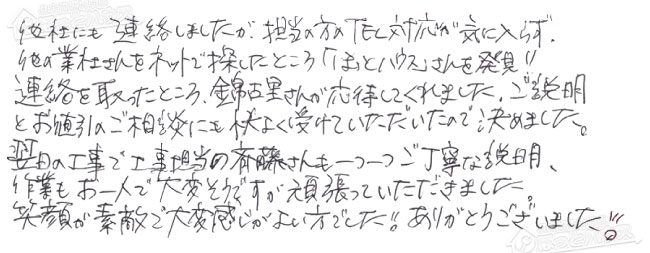 他社にも連絡しましたが、担当の方のTEL対応が気に入らず、
他の業社さんをネットで探したところ「ほっとハウス」さんを発見!!
連絡を取ったところ、錦古里さんが応待してくれました。ご説明
とお値引のご相談にも快よく受けていただいたので決めました。
翌日の工事で工事担当の斉藤さんも一つ一つご丁寧な説明、
作業もお一人で大変そうですが頑張っていただきました。
笑顔が素敵で大変感じがよい方でした!! ありがとうございました!!